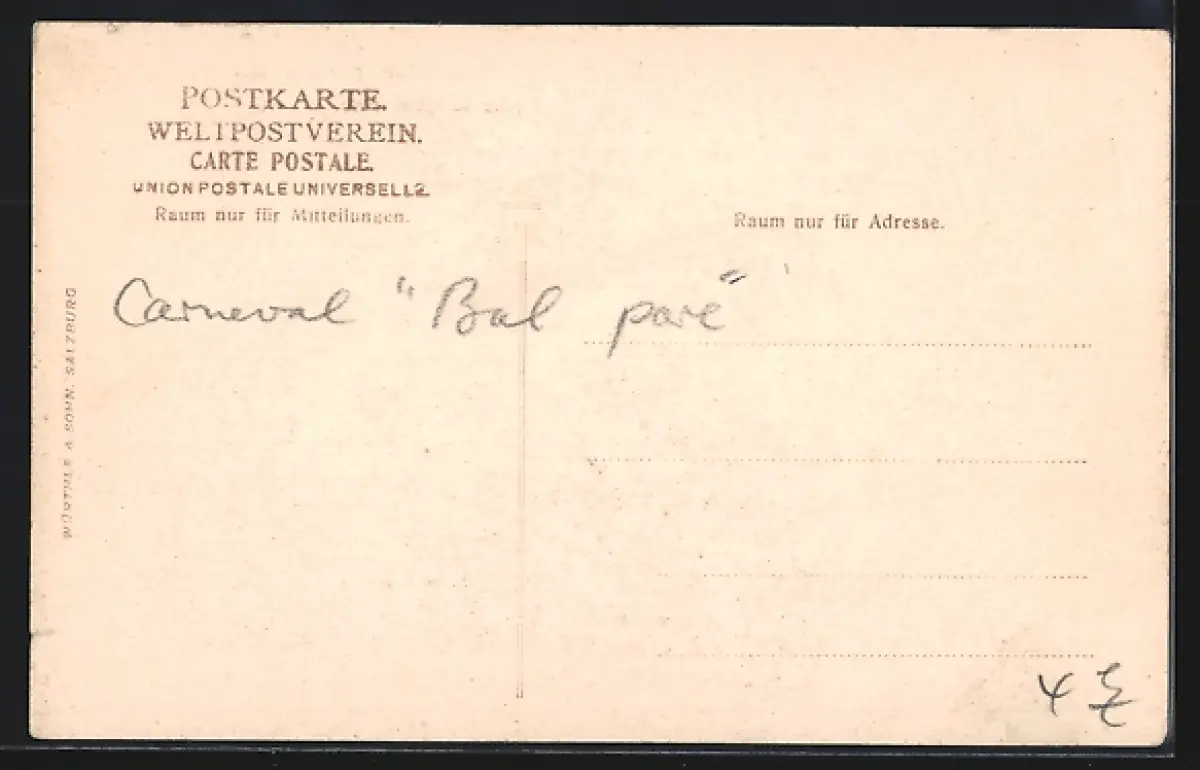 POSTKARTE.
WELTPOSTVEREIN.
CARTE POSTALE.
UNION POSTALE UNIVERSELLE.
Raum nur für Mitteilungen.
Raum nur für Adresse.
Carneval "Bal paré"
WÜRTHLE & SOHN, SALZBURG
4